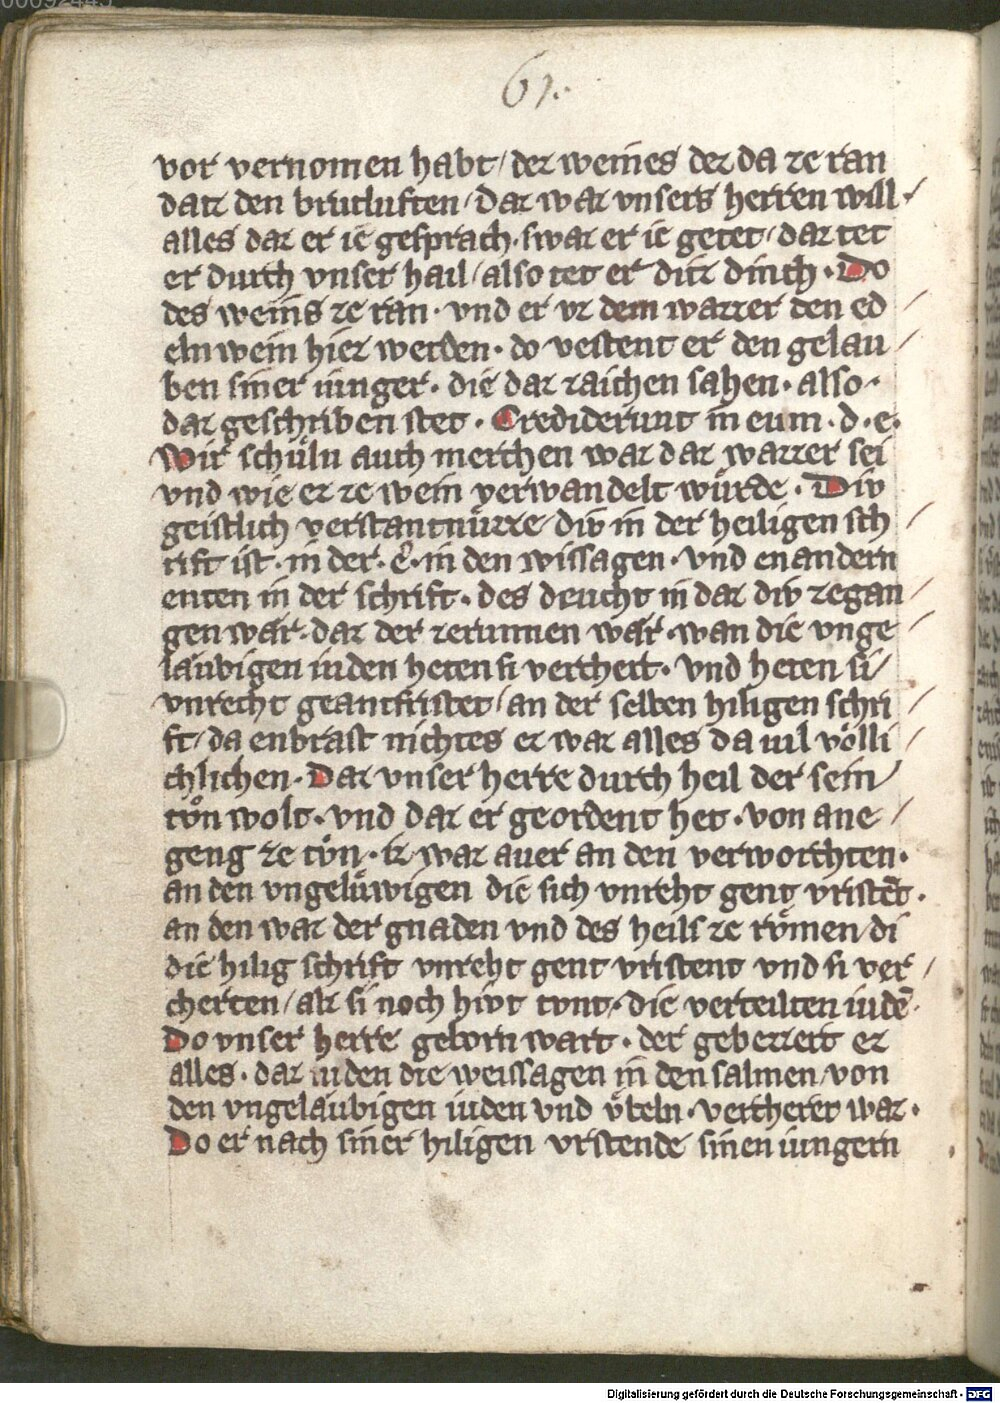 61.
vor vernomen habt / der weines der da ze ran
datz den brutluften / Daz waz vnsers herren will /
alles daz er ie gesprach · swaz er ie getet / daz tet
er durch vnser hail / also tet er ditz dinch · Do
des weins ze ran · vnd er vz dem wazzer den ed /
eln wein hiez werden · do vestent er den gelau /
ben siner iunger · die daz zaichen sahen · also ·
daz geschriben stet · Crediderunt in eum · d · e ·
Wir schuͤln auch merchen waz daz wazzer sei
vnd wie ez ze wein verwandelt wuͤrde · Div
geistlich verstantnuͤzze div in der heiligen sch /
rift ist · in der · e · in den wissagen · vnd en andern
enten in der schrift · des deucht in daz div zegan /
gen waͤr · daz der zerunnen waͤr · wan die vnge /
laͮbigen iuden heten si verchert · vnd heten si /
vnrecht geantfristet / an der selben hiligen schri /
ft / da enbrast nichtes ez waz alles da uil voͤlli /
chlichen · Daz vnser herre durch heil der sein /
tuͦn wolt · vnd daz er geordent het · von ane /
geng ze tuͦn · iz waz auer an den verworchten ·
an den vngeluͤwigen die sich vnreht gent vristēt ·
an den waz der gnaden vnd des heils ze rvͦnnen / di
die hilig schrift vnreht gent vristent vnd si ver /
cherten / als si noch hivt tvnt · die verteilten iudē ·
Do vnser herre geborn wart · der gebezzert ez
alles · daz in den die weissagen in den salmen / von
den vngelaubigen iuden vnd vͤbeln · vercheret waz ·
Do er nach siner hiligen vrstende sinen iungern
Digitalisierung gefördert durch die Deutsche Forschungsgemeinschaft - DFG